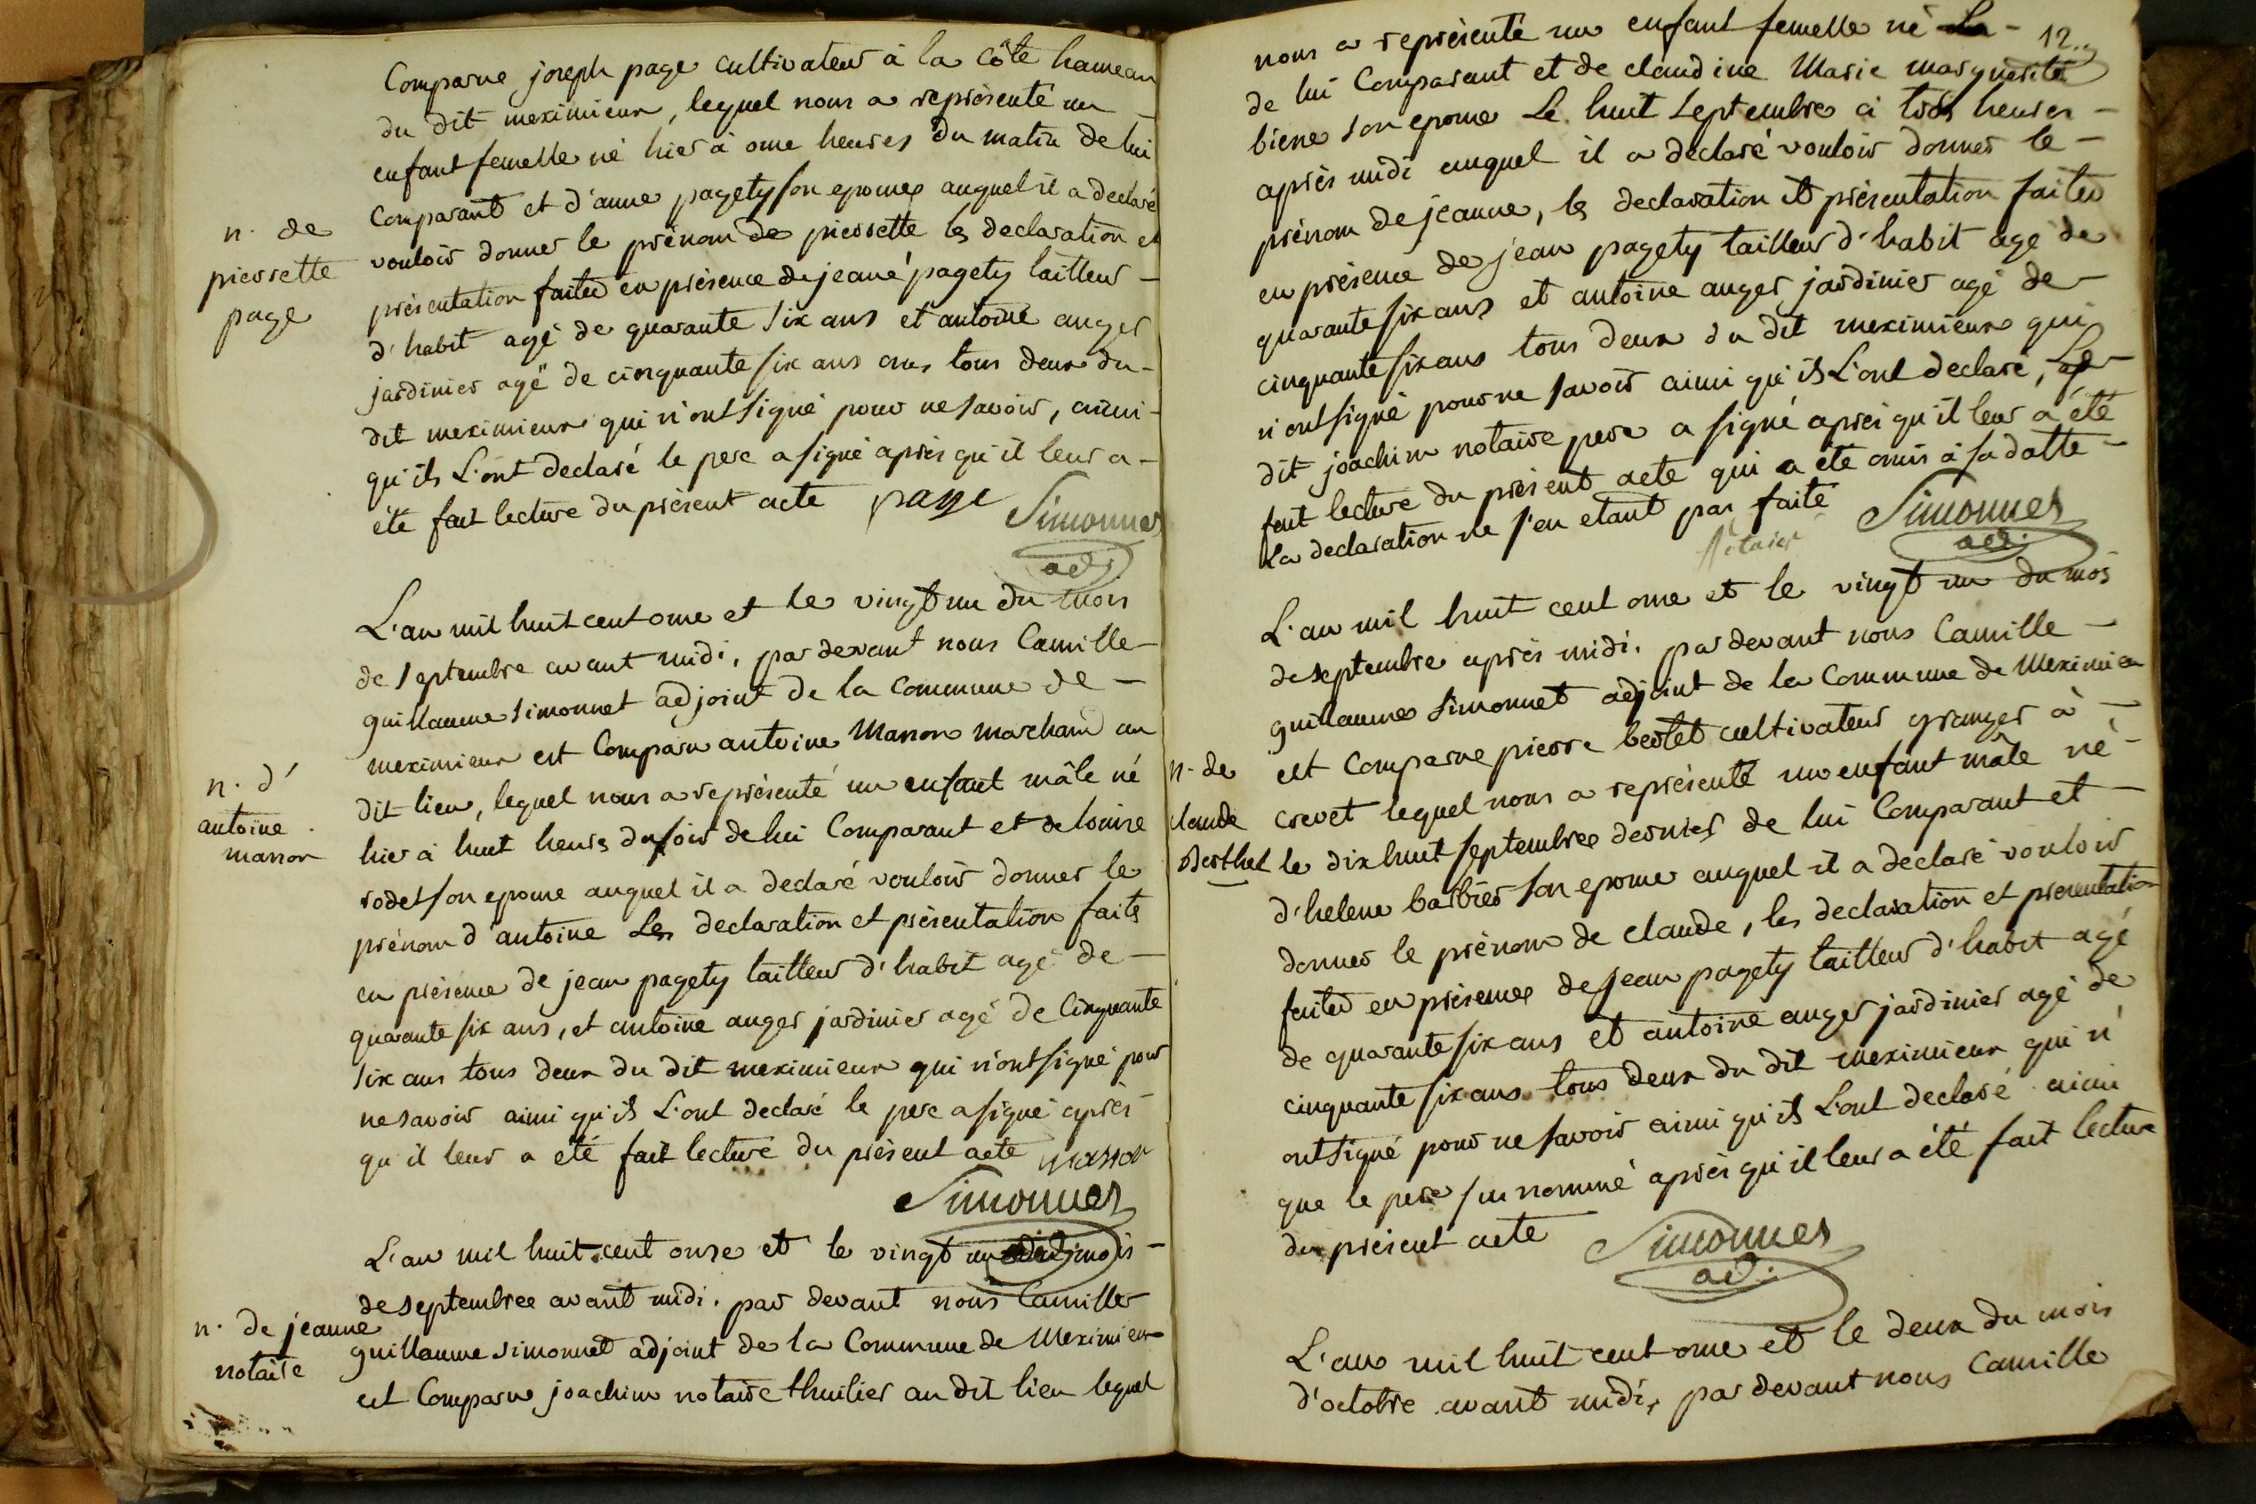 Comparue joseph page cultivateur à la Côte hameau
du dit meximieux, lequel nous a représenté un
enfant femelle né hier à onze heures du matin de lui
Comparant et d'anne pagety son epouse auquel il a declaré
n. de
pierrette
page
vouloir donner le prénom de pierrette les declaration et
présentation faites en présence de jeane pagety tailleur
d'habit agé de quarante six ans et antoine auger
jardinier agé de cinquante six ans tous deux du
dit meximieux qui n'ont signé pour ne savoir, ainsi
qu'ils L'ont declaré le pere a signé après qu'il leur a
été fait lecture du présent acte page Simonnet
adj.
L'an mil huit cent onze et le vingt un du mois
de septembre avant midi, pardevant nous Camille
guillaume simonnet adjoint de la Commune de
meximieux est Comparu antoine Masson marchand au
n. d'
antoine
masson
dit lieu, lequel nous a représenté un enfant mâle né
hier à huit heures du soir de lui Comparant et de louise
rodet son epouse auquel il a declaré vouloir donner le
prénom d'antoine Les declaration et présentation faites
en présence de jean pagety tailleur d'habit agé de
quarante six ans, et antoine auger jardinier agé de Cinquante
six ans tous deux du dit meximieux qui n'ont signé pour
ne savoir ainsi qu'ils L'ont declaré le pere a signé après
qu'il leur a été fait lecture du présent acte masson
Simonnet
L'an mil huit cent onze et le vingt un du mois
de septembre avant midi, par devant nous Camille
n. de jeanne
notaire
guillaume simonnet adjoint de la Commune de Meximieux
est Comparu joachim notaire thuilier au dit lieu lequel
12
nous a représenté un enfant femelle né
de lui Comparant et de claudine Marie marguerite
biene son epouse Le huit septembre à trois heures
après midi auquel il a declaré vouloir donner le
prénom de jeanne, les declaration et présentation faites
en présence de jean pagety tailleur d'habit agé de
quarante six ans et antoine auger jardinier agé de
cinquante six ans tous deux du dit meximieux qui
n'ont signé pour ne savoir ainsi qu'ils L'ont declaré, Le
dit joachim notaire pere a signé après qu'il leur a été
fait lecture du présent acte qui a été omis à sa datte
La declaration ne s'en etant pas faite Simonnet
adj.
L'an mil huit cent onze et le vingt un du mois
de septembre après midi, pardevant nous Camille
guillaume Simonnet adjoint de la Commune de Meximieux
n. de
claude
Berthet
est Comparue pierre bertet cultivateur granger à
crevet lequel nous a représenté un enfant mâle né
le dix huit septembre dernier de lui Comparant et
d'helene barbier son epouse auquel il a declaré vouloir
donner le prénom de claude, les declaration et présentation
faites en présence de jean pagety tailleur d'habit agé
de quarante six ans et antoine auger jardinier agé de
cinquante six ans tous deux du dit meximieux qui n'
ont signé pour ne savoir ainsi qu'ils L'ont declaré ainsi
que le pere sus nommé après qu'il leur a été fait lecture
du présent acte Simonnet
adj.
L'an mil huit cent onze et le deux du mois
d'octobre avant midi, par devant nous Camille